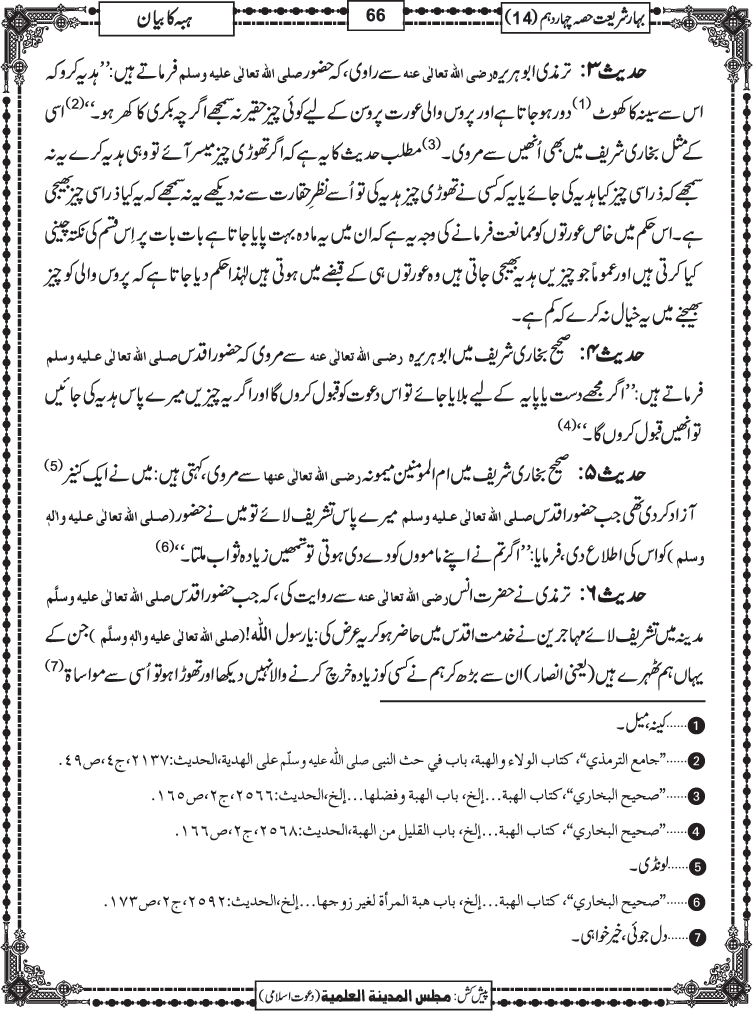 بہار شریعت حصہ چہاردہم (14)
66
ہبہ کا بیان
حدیث ۳: ترمذی ابوہریرہ رضی اللہ تعالٰی عنہ سے راوی، کہ حضور صلی اللہ تعالٰی علیہ وسلم فرماتے ہیں: ’’ہدیہ کرو کہ
اس سے سینہ کا کھوٹ (1) دور ہوجاتا ہے اور پروس والی عورت پروسن کے لیے کوئی چیز حقیر نہ سمجھے اگرچہ بکری کا کھر ہو۔‘‘(2) اسی
کے مثل بخاری شریف میں بھی اُنھیں سے مروی۔ (3) مطلب حدیث کا یہ ہے کہ اگر تھوڑی چیز میسر آئے تو وہی ہدیہ کرے یہ نہ
سمجھے کہ ذراسی چیز کیا ہدیہ کی جائے یا یہ کہ کسی نے تھوڑی چیز ہدیہ کی تو اُسے نظر حقارت سے نہ دیکھے یہ نہ سمجھے کہ یہ کیا ذراسی چیز بھیجی
ہے۔ اس حکم میں خاص عورتوں کو ممانعت فرمانے کی وجہ یہ ہے کہ ان میں یہ مادہ بہت پایا جاتا ہے بات بات پر اِس قسم کی نکتہ چینی
کیا کرتی ہیں اور عموماً جو چیزیں ہدیہ بھیجی جاتی ہیں وہ عورتوں ہی کے قبضے میں ہوتی ہیں لہٰذا حکم دیا جاتا ہے کہ پروس والی کو چیز
بھیجنے میں یہ خیال نہ کرے کہ کم ہے۔
حدیث ۴: صحیح بخاری شریف میں ابوہریرہ رضی اللہ تعالٰی عنہ سے مروی کہ حضور اقدس صلی اللہ تعالٰی علیہ وسلم
فرماتے ہیں: ’’اگر مجھے دست یا پایہ کے لیے بلایا جائے تو اس دعوت کو قبول کروں گا اور اگر یہ چیزیں میرے پاس ہدیہ کی جائیں
تو انھیں قبول کروں گا۔‘‘ (4)
حدیث ۵: صحیح بخاری شریف میں ام المومنین میمونہ رضی اللہ تعالٰی عنھا سے مروی، کہتی ہیں: میں نے ایک کنیز (5)
آزاد کردی تھی جب حضور اقدس صلی اللہ تعالٰی علیہ وسلم میرے پاس تشریف لائے تو میں نے حضور (صلی اللہ تعالٰی علیہ والہٖ
وسلم) کو اس کی اطلاع دی، فرمایا: ’’اگر تم نے اپنے مامووں کو دے دی ہوتی تو تمھیں زیادہ ثواب ملتا۔‘‘ (6)
حدیث ۶: ترمذی نے حضرت انس رضی اللہ تعالٰی عنہ سے روایت کی، کہ جب حضور اقدس صلی اللہ تعالٰی علیہ وسلَّم
مدینہ میں تشریف لائے مہاجرین نے خدمت اقدس میں حاضر ہوکر یہ عرض کی: یارسول اللہ! (صلی اللہ تعالٰی علیہ والہٖ وسلَّم) جن کے
یہاں ہم ٹھہرے ہیں (یعنی انصار) ان سے بڑھ کر ہم نے کسی کو زیادہ خرچ کرنے والا نہیں دیکھا اور تھوڑا ہو تو اُسی سے مواساۃ (7)
1 ......کینہ، میل۔
2 ......”جامع الترمذي“، کتاب الولاء والهبة، باب في حث النبی صلی اللّٰہ علیہ وسلّم علی الهدية، الحديث:٢١٣٧، ج٤، ص٤٩.
3 ......”صحيح البخاري“، کتاب الهبة...إلخ، باب الهبة وفضلها...إلخ، الحديث:٢٥٦٦، ج٢، ص١٦٥.
4 ......”صحيح البخاري“، کتاب الهبة...إلخ، باب القليل من الهبة، الحديث:٢٥٦٨، ج٢، ص١٦٦.
5 ......لونڈی۔
6 ......”صحيح البخاري“، کتاب الهبة...إلخ، باب هبة المرأة لغير زوجها...إلخ، الحديث:٢٥٩٢، ج٢، ص١٧٣.
7 ......دل جوئی، خیرخواہی۔
پیش کش: مجلس المدینۃ العلمیۃ (دعوت اسلامی)